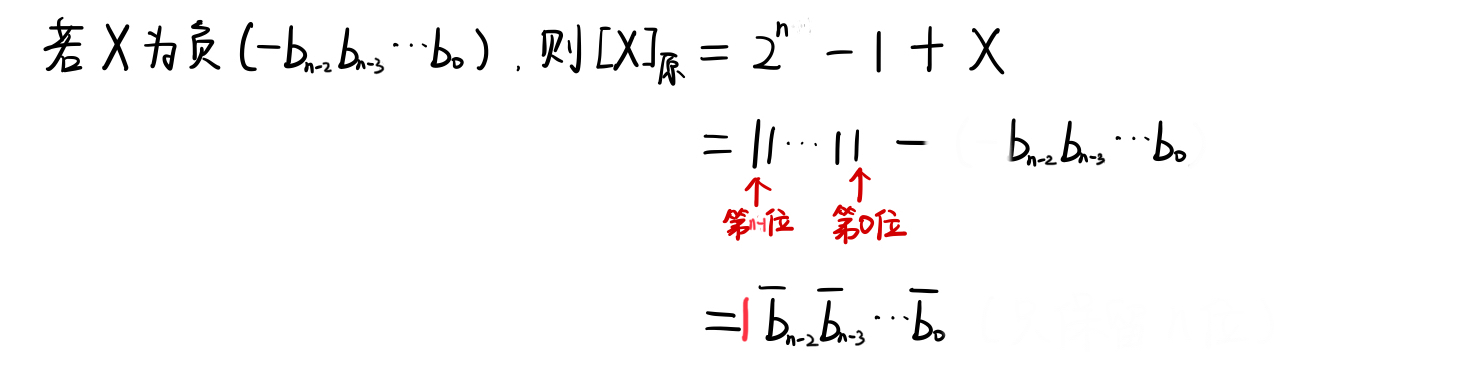 若 X 为负 (-bₙ₋₂bₙ₋₃⋯b₀), 则 [X]原 = 2ⁿ - 1 + X
= 11⋯11 - bₙ₋₂bₙ₋₃⋯b₀
↑ ↑
第n-1位 第0位
= 1 b̅ₙ₋₂b̅ₙ₋₃⋯b̅₀